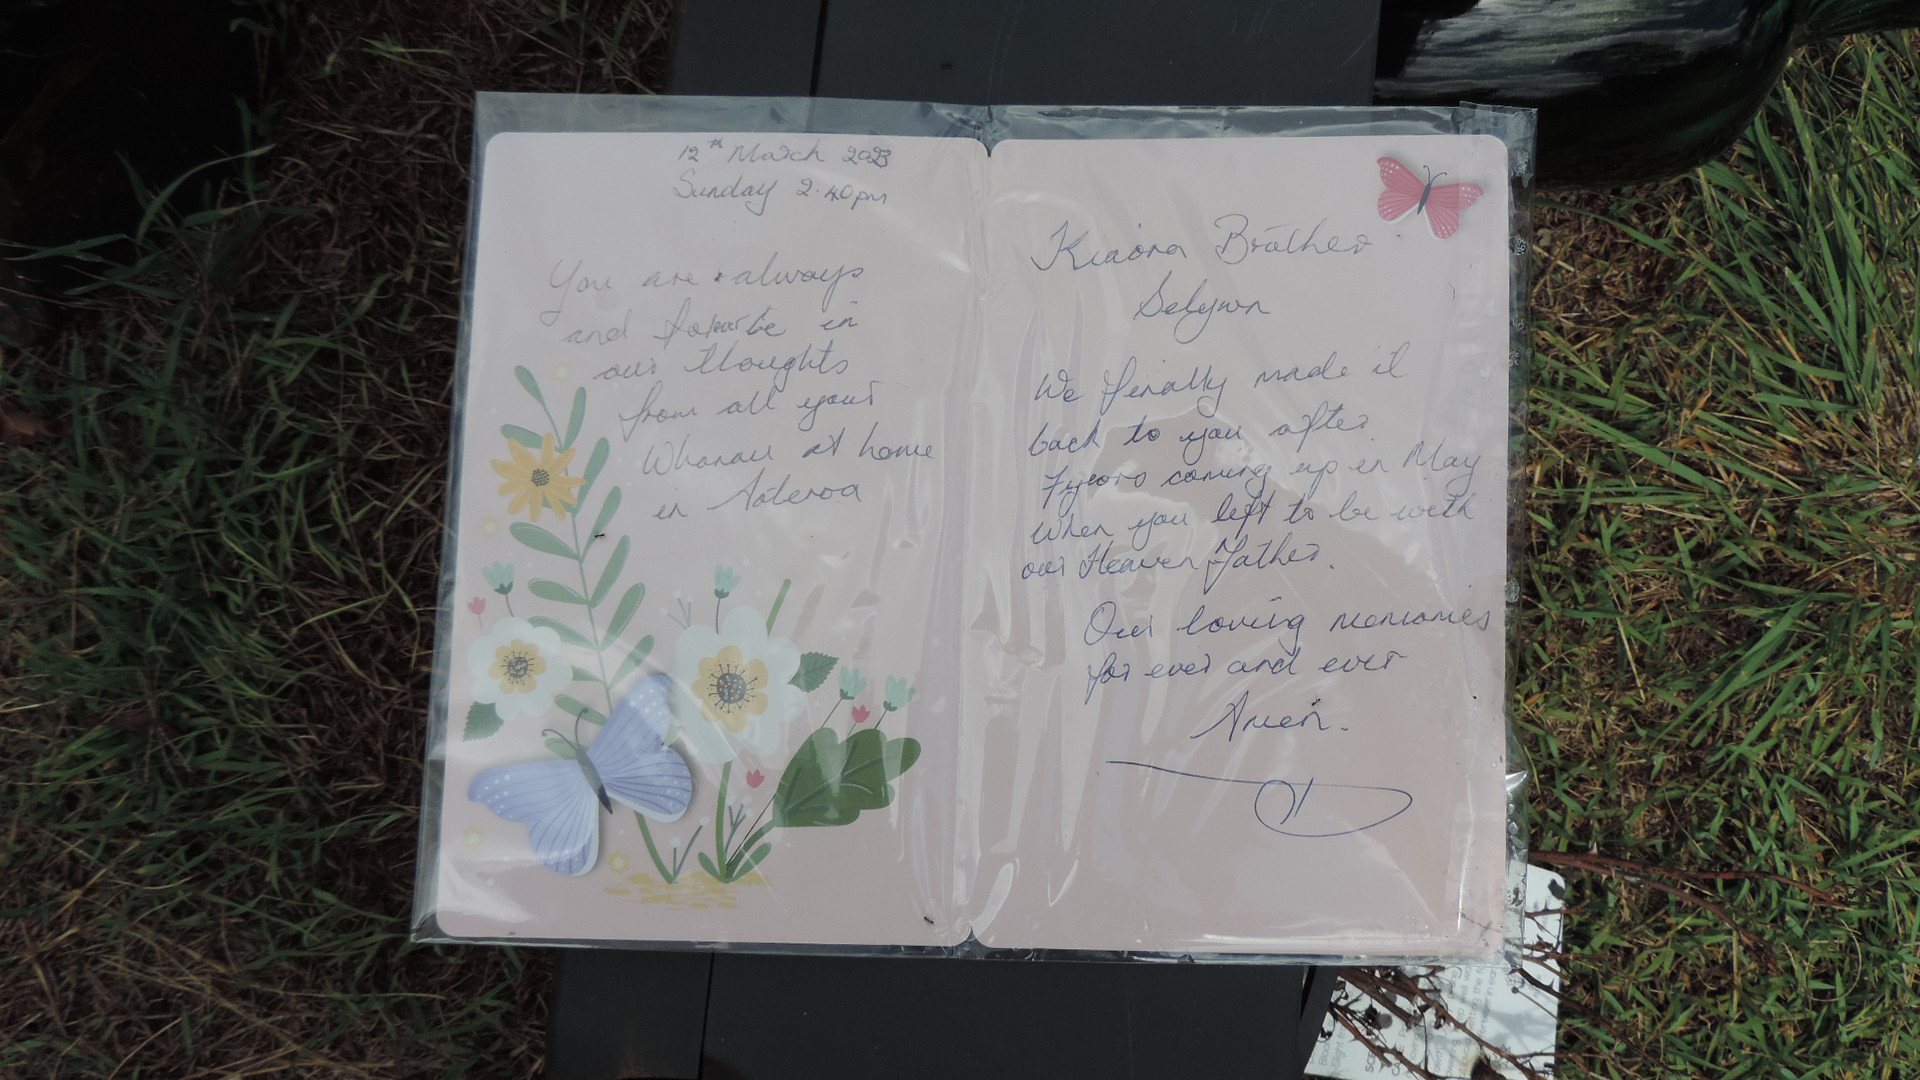 12th March 2023
Sunday 2.40pm
You are always
and be in
our thoughts
from all your
Whanau at home
in Aoteroa
Kiaora Brother
Selywn
We finally made it
back to you after
7 years coming up in May
when you left to be with
our Heaven Father.
Our loving memories
for ever and ever
Amen.